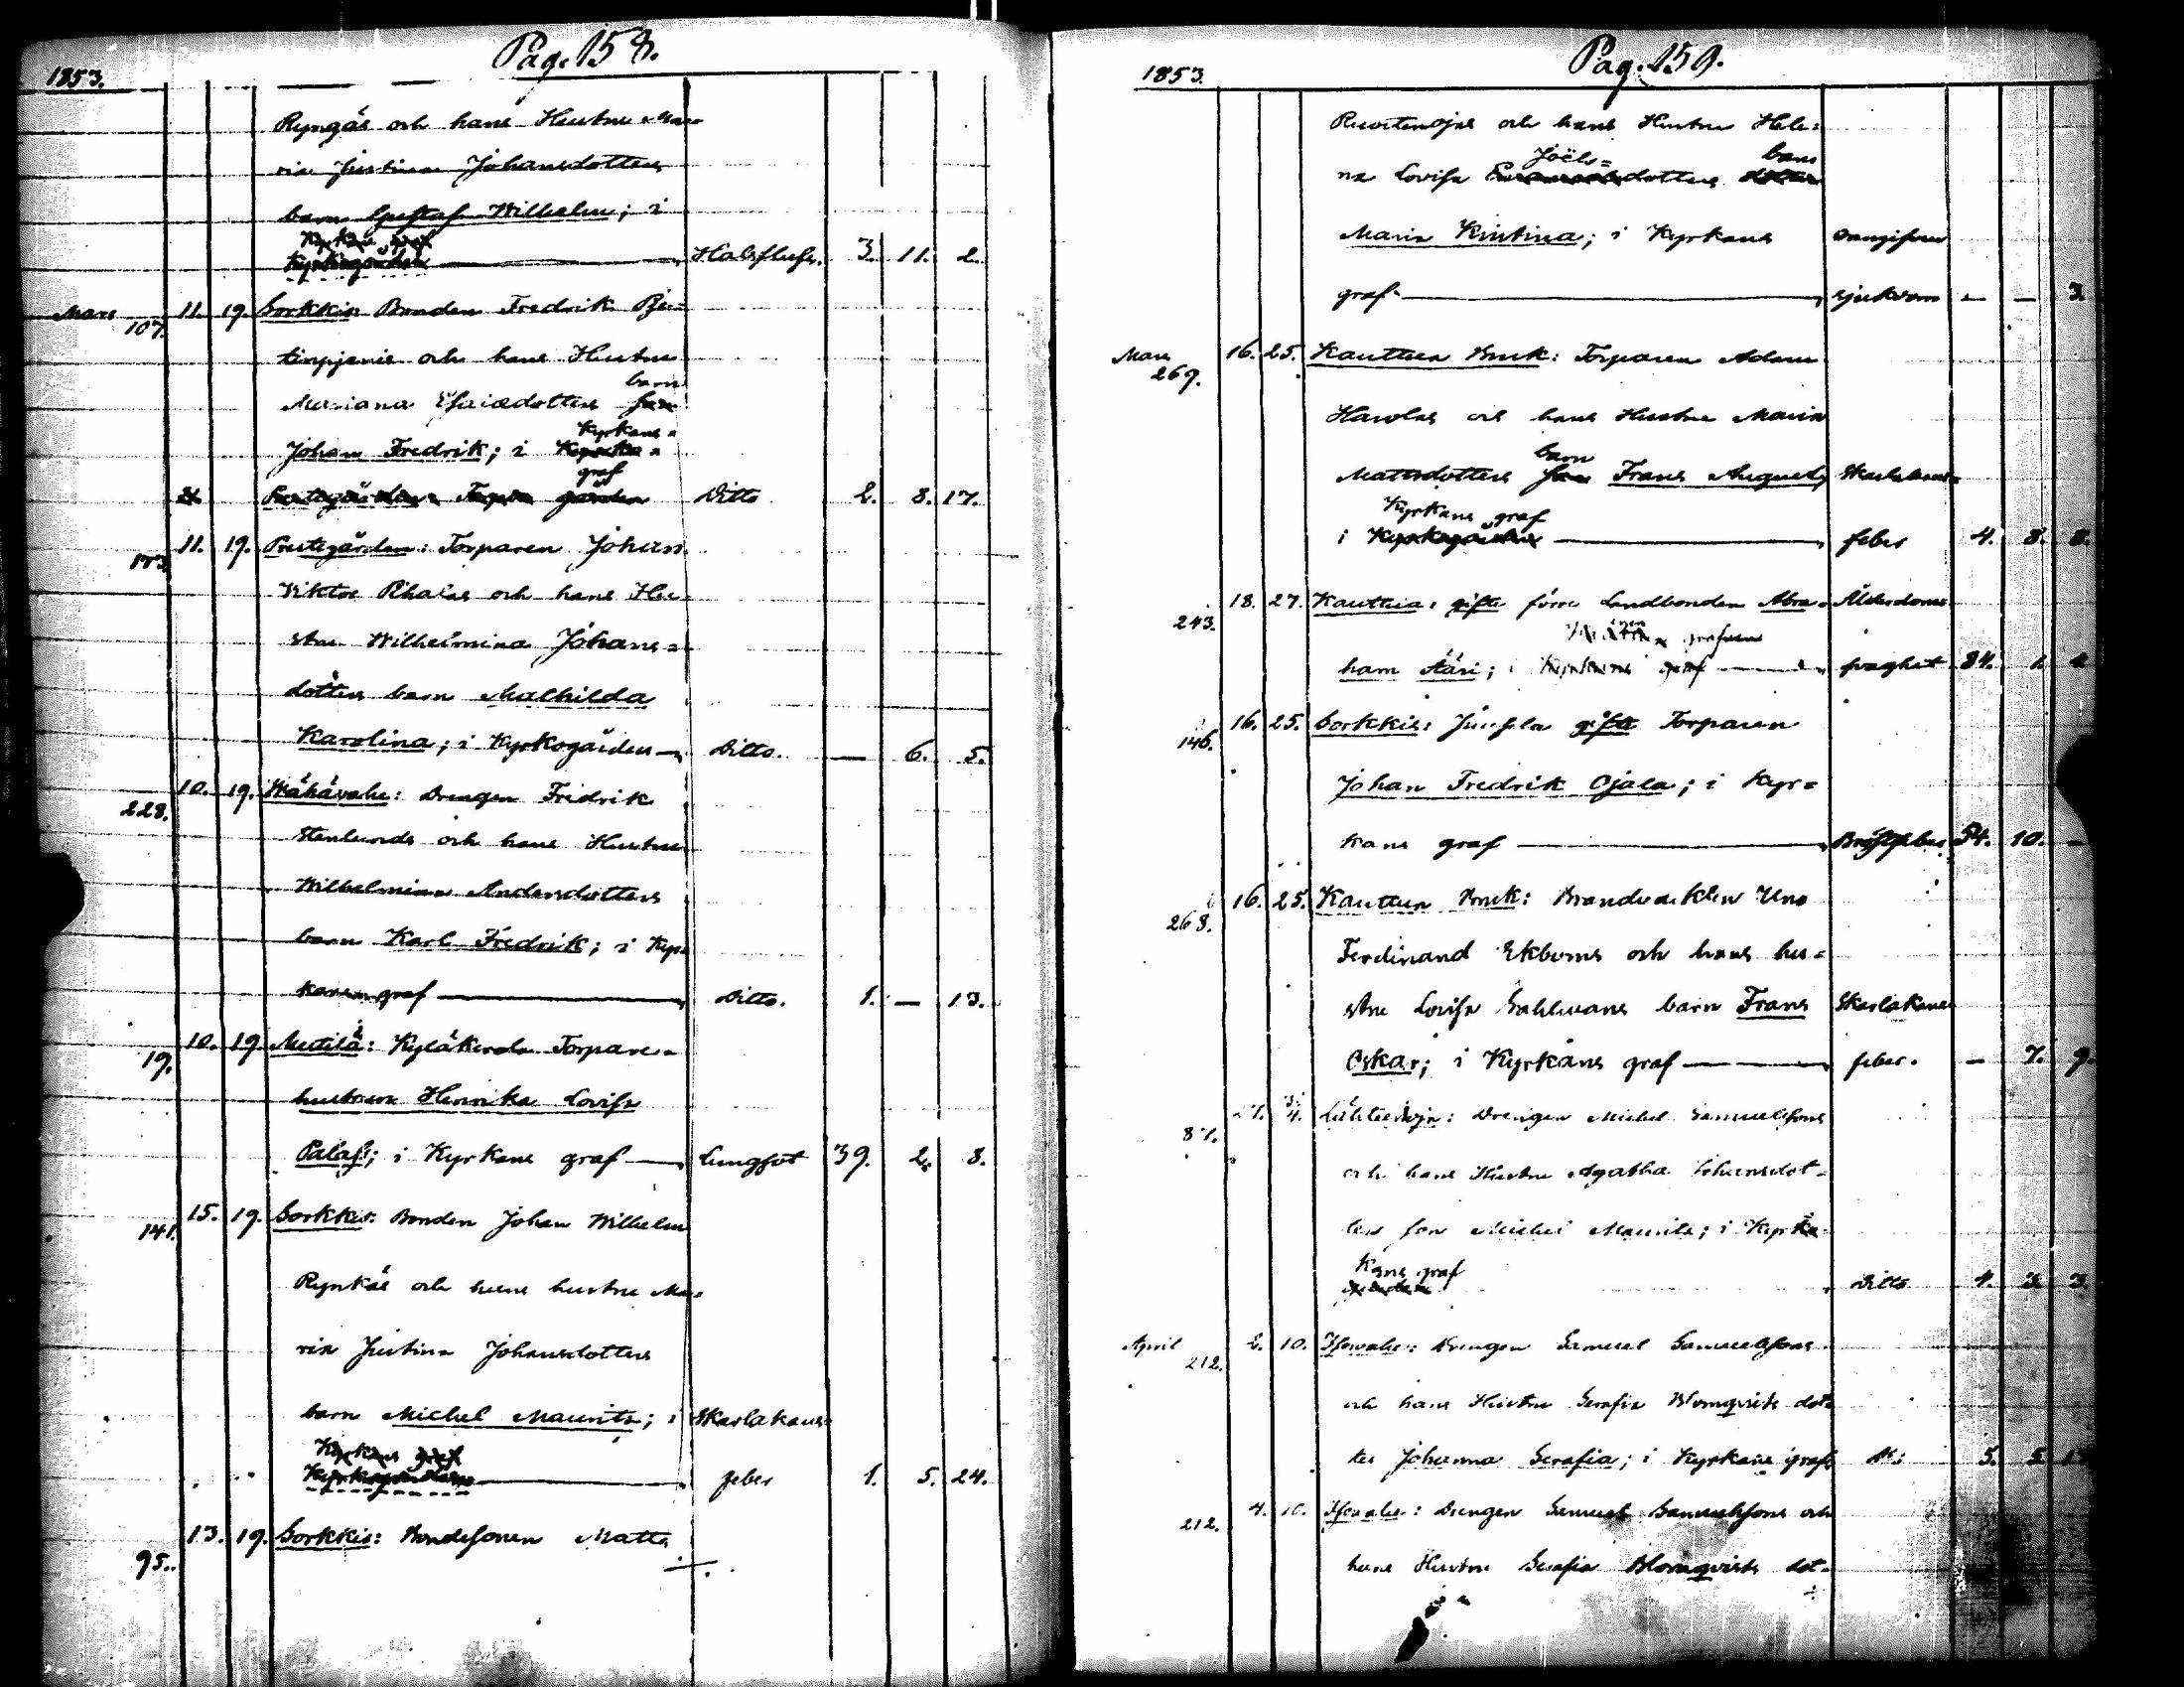 1853.
Pag. 158.
Ryngäs och hans Hustru Ma-
ria Justina Johansdotters
barn Gustaf Wilhelm; i
Kyrkans graf
Kyrkogården Halsflusf. 3. 11. 2.
Mars 107. 11. 19. Sorkkis Bonden Fredrik
och hans Hustru
barn
Mariana Esaiædotters
Kyrkans
Johan Fredrik; i
graf
Prestegården Ditto 2. 8. 17.
173. 11. 19. Prestegården: Torparen Johan
Viktor och hans Hu-
stru Wilhelmina Johans-
dotters barn Mathilda
Karolina; i Kyrkogården Ditto. — 6. 5.
228. 10. 19. Wähävahe: Drengen Fridrik
Stenlunds och hans Hustru
Wilhelmina Andersdotters
barn Karl Fredrik; i Kyr-
kans graf Ditto. 1. — 13.
19. 10. 19. Mutilä: Torpare-
hustrun Henrika Lovisa
Palas; i Kyrkans graf Lungsot 39. 2. 8.
141. 15. 19. Sorkkis: Bonden Johan Wilhelm
Rynkäs och hans hustru Ma-
ria Justina Johansdotters
barn Michel Maurits; i Skarlakans-
Kyrkans graf
Kyrkogården feber 1. 5. 24.
95. 13. 19. Sorkkis: Bondesonen Matts
1853.
Pag. 159.
och hans Hustru Hele-
Joëls- barn
na Lovisa dotters
Maria Kristina; i Kyrkans
graf sjukdom — — 3.
Mars 269. 16. 25. Kauttua Bruk: Torparen Adam
och hans Hustru Maria
barn
Mattsdotters Frans August, Skarlakans-
Kyrkans graf
i Kyrkogården feber 4. 8. 8.
243. 18. 27. Kauttua: gifte förre Landbonden Abra- Ålderdoms
grafven
ham Ääri; i Kyrkans graf svaghet 84. 1.
146. 16. 25. Sorkkis: gifte Torparen
Johan Fredrik Ojala; i Kyr-
kans graf Bröstfeber 54. 10. —
268. 16. 25. Kauttua Bruk: Uno
Ferdinand Ekboms och hans hu-
stru Lovisa barn Frans Skarlakans
Oskar; i Kyrkans graf feber. — 7. 9.
87. 27. 4. Drengen Michel Samuelssons
och hans Hustru Agatha Johansdot-
ters son Michel Maurits; i Kyrka-
Kans graf
Ditto 4. 3. 3.
April 212. 2. 10. Drengen Samuel Samuelssons
och hans Hustru Serafia Blomqvists dot-
ter Johanna Serafia; i Kyrkans graf 5. 5.
212. 4. 10. Drengen Samuel Samuelssons och
hans Hustru Serafia Blomqvists dot-